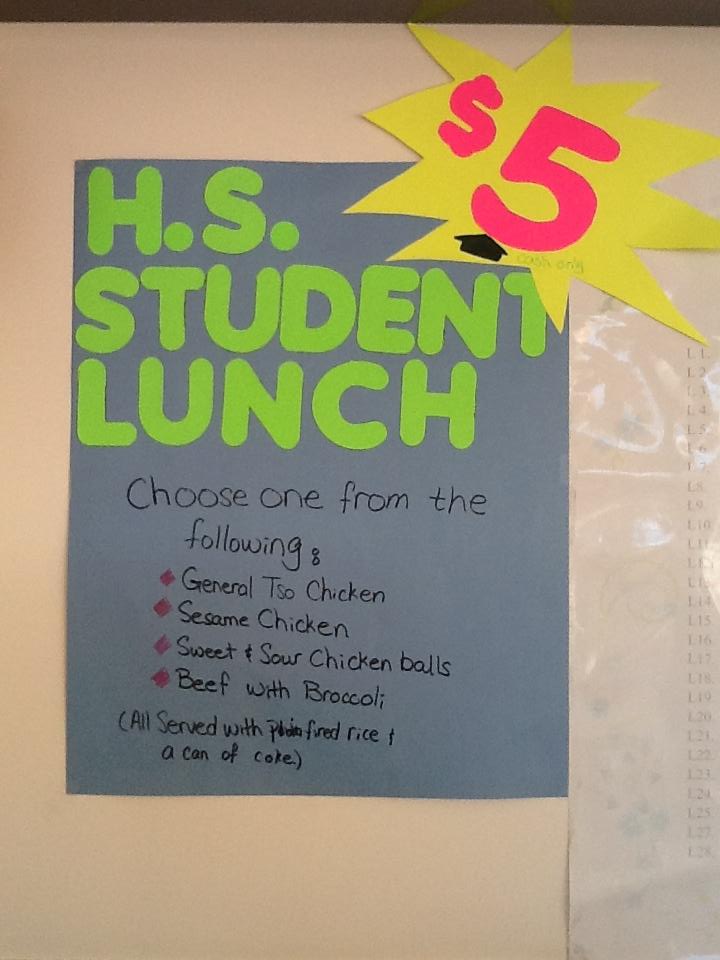 $5
cash only
H.S.
STUDENT
LUNCH
Choose one from the
following:
General Tso Chicken
Sesame Chicken
Sweet & Sour Chicken balls
Beef with Broccoli
(All Served with fired rice &
a can of coke.)
L1.
L2
L3
L4
L5.
L6
L7
L8.
L9.
L10.
L11.
L12.
L13
L14
L15.
L16.
L17.
L18.
L19.
L20.
L21.
L22.
L23.
L24.
L25.
L27.
L28.